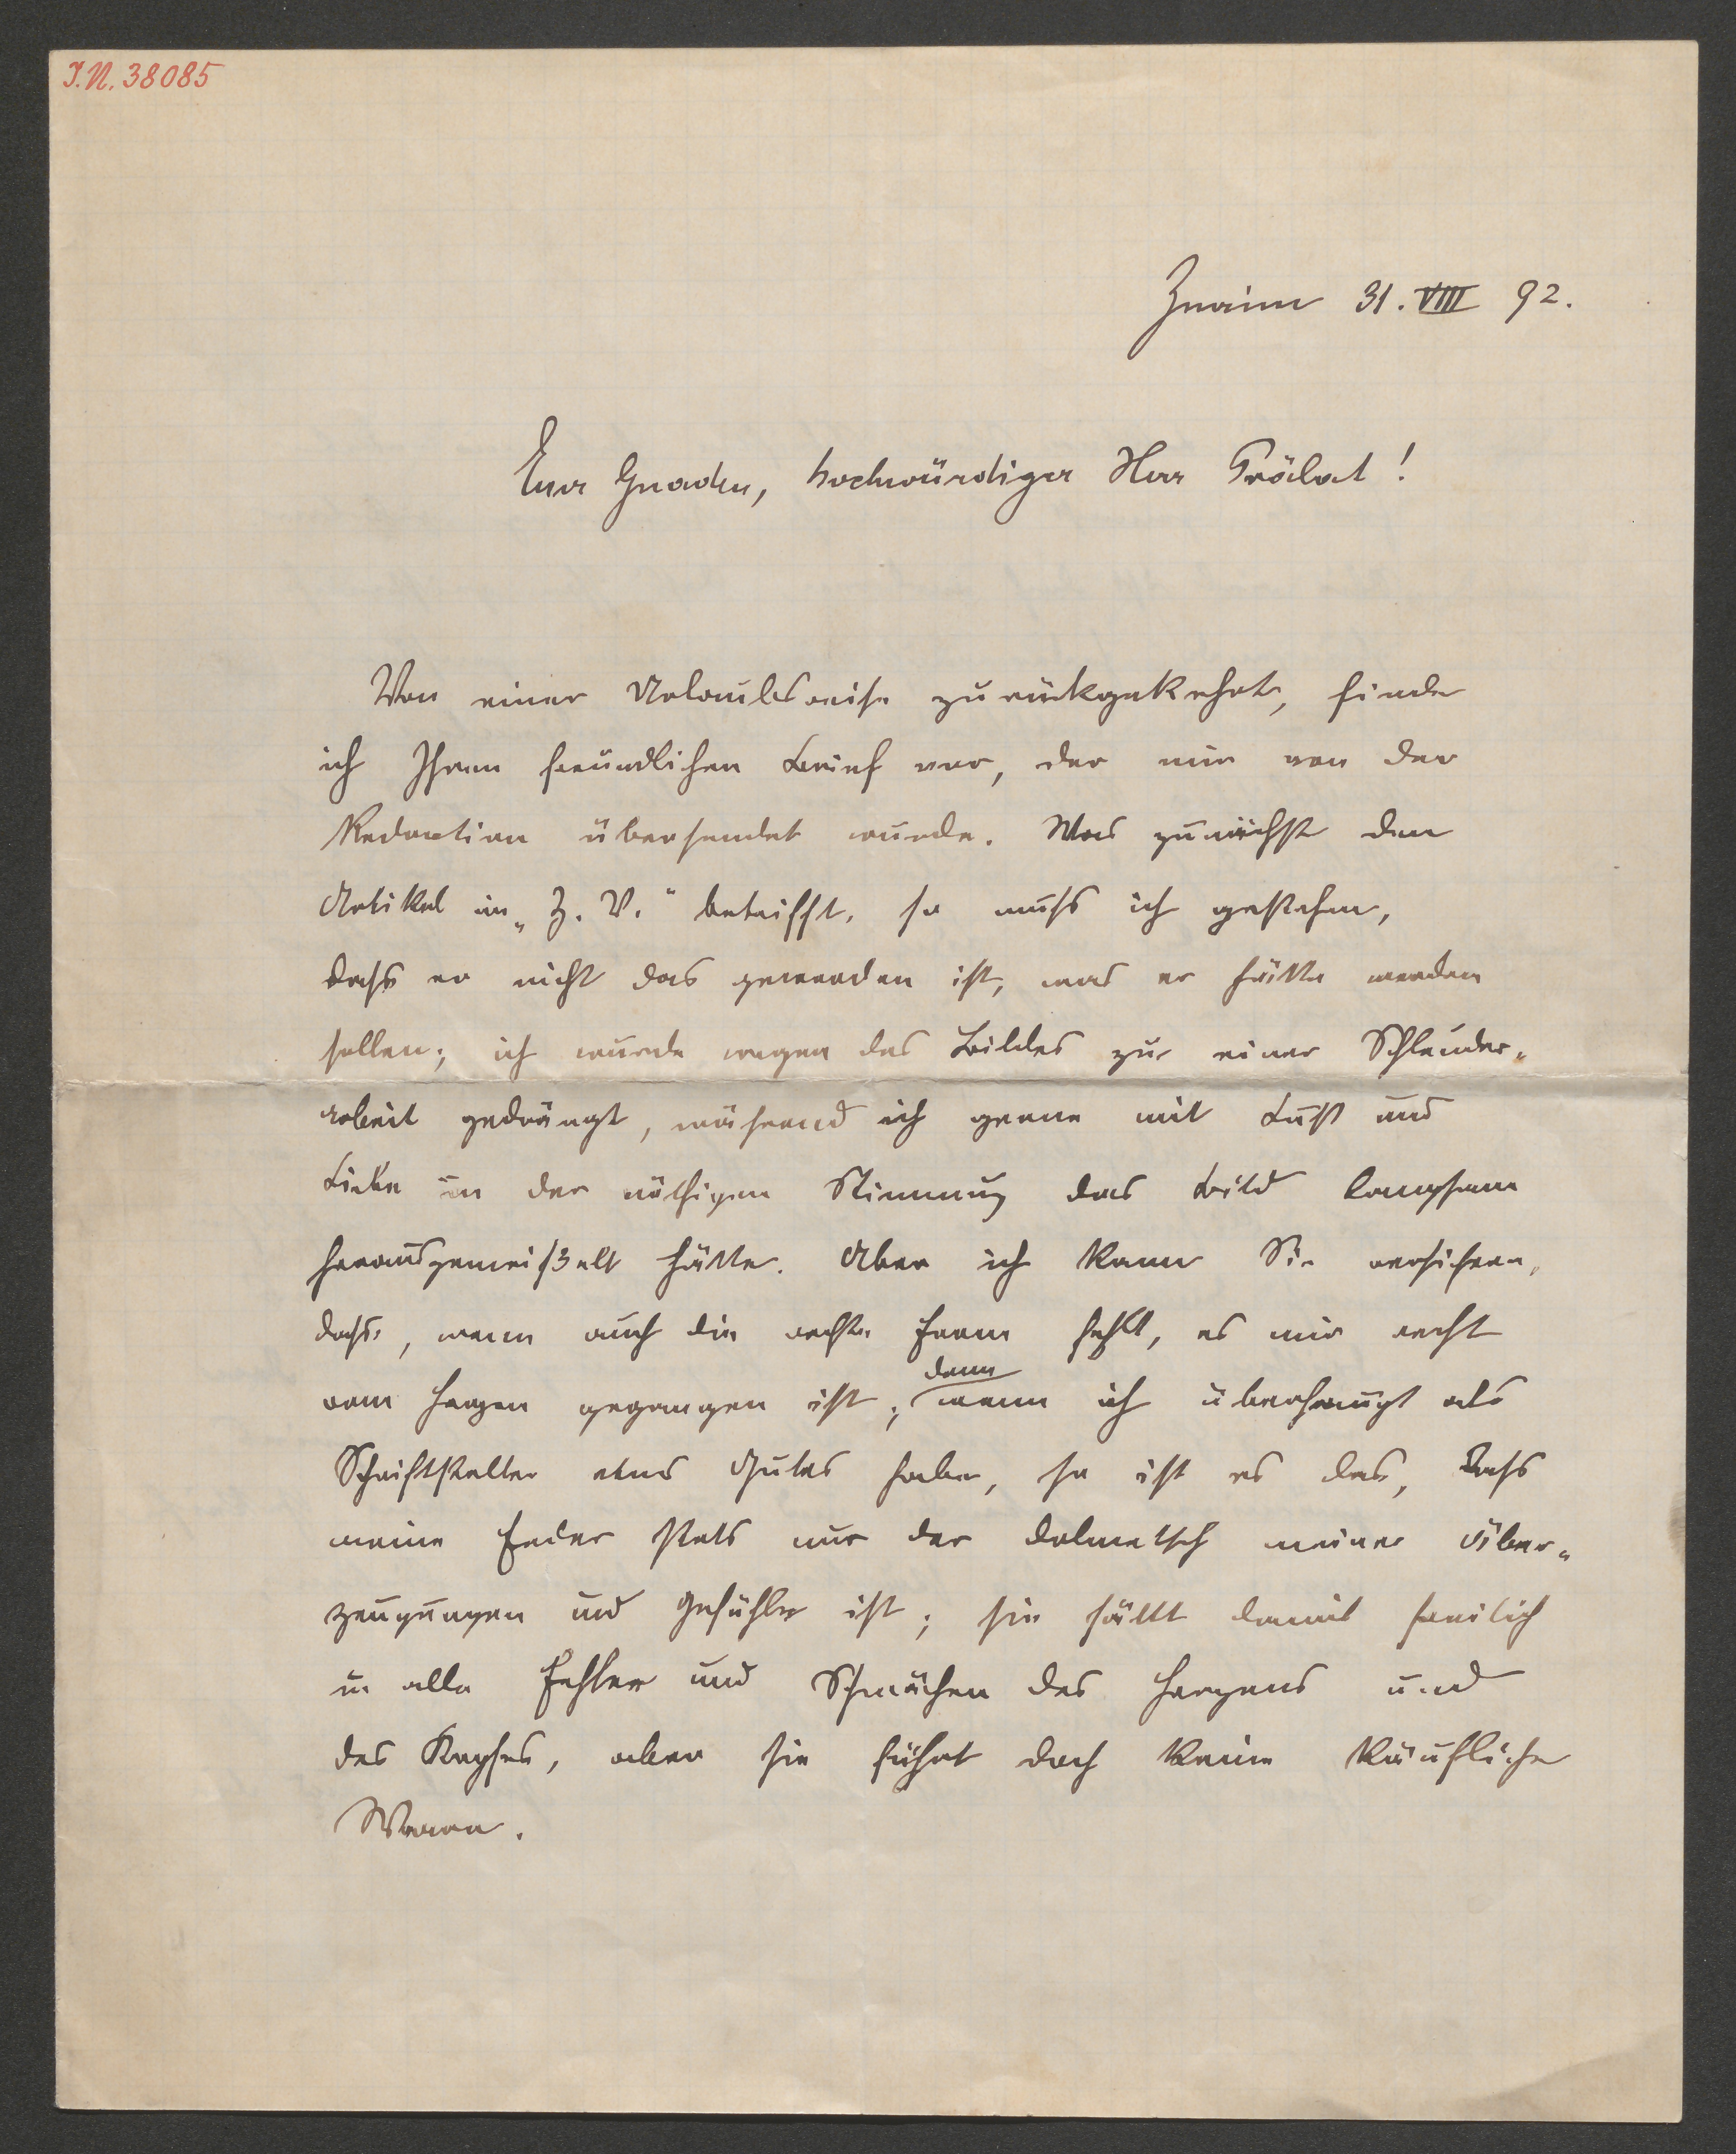 I.N. 38085
Znaim 31. VIII 92.
Euer Gnaden, hochwürdiger Herr Prälat!
Von einer Urlaubsreise zurückgekehrt, finde
ich Ihren freundlichen Brief vor, der mir von der
Redaction übersendet wurde. Was zunächst den
Artikel in „Z. V.“ betrifft, so muß ich gestehen,
daß er nicht das geworden ist, was er hätte werden
sollen; ich wurde wegen des Bildes zur einer Schleuder-
arbeit gedrängt, während ich gerne mit Lust und
Liebe in der nöthigen Stimmung das Bild langsam
herausgemeißelt hätte. Aber ich kann Sie versichern,
daß, wenn auch die rechte Form fehlt, es mir recht
vom Herzen gegangen ist; denn wenn ich überhaupt als
Schriftsteller etwas Gutes habe, so ist es das, daß
meine Feder stets nur der Dolmetsch meiner Über-
zeugungen und Gefühle ist; sie fällt damit freilich
in alle Fehler und Schwächen des Herzens und
des Kopfes, aber sie führt doch keine käufliche
Waren.